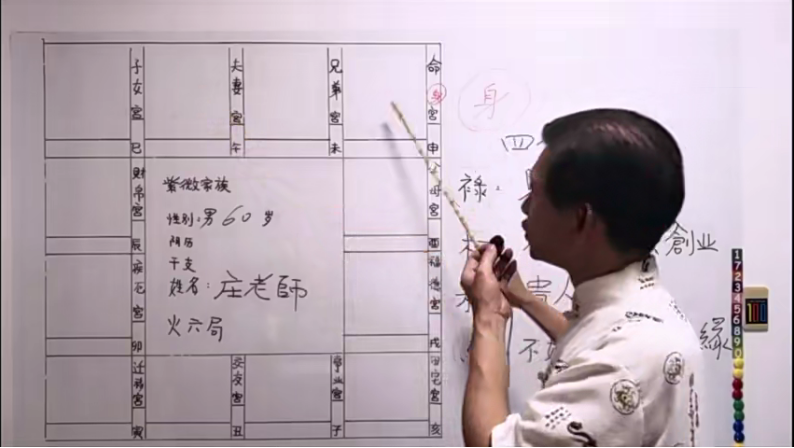 子女宮
巳
夫妻宮
午
兄弟宮
未
命身宮
申
身
四
財帛宮
辰
紫微家族
性别:男60岁
阴历
干支
姓名:庄老師
火六局
父母宮
酉
疾厄宮
卯
福德宮
戌
迁移宮
寅
交友宮
丑
事业宮
子
田宅宮
亥
祿:
創业
貴人
緣
不
1
7
2
3
4
5
6
8
9
0
100